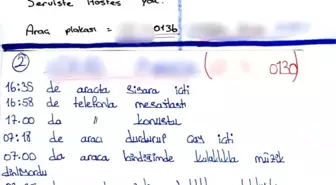 Serviste Hostes yok.
Araç plakası = 0136
2 ( 0130
16:35 de araçta sigara içti
16:58 de telefonla mesajlaştı
17.00 da " konuştu
07:18 de aracı durdurup çay içti
07:00 da araca bindiğimde kulaklıkla müzik
dinliyordu